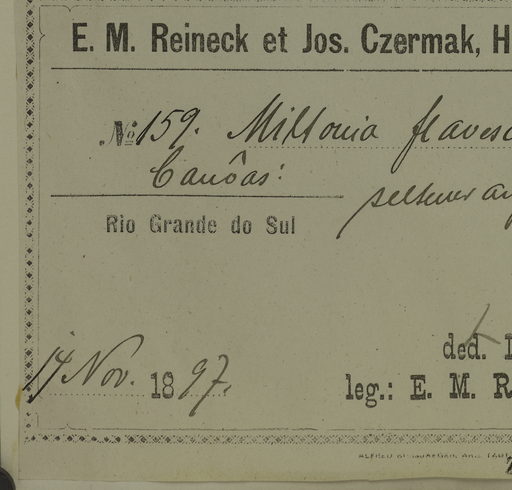 E. M. Reineck et Jos. Czermak, H
No 159. Miltonia flavesc
Canôas:
seltener an
Rio Grande do Sul
ded. D
14 Nov. 1897.
leg.: E. M. R